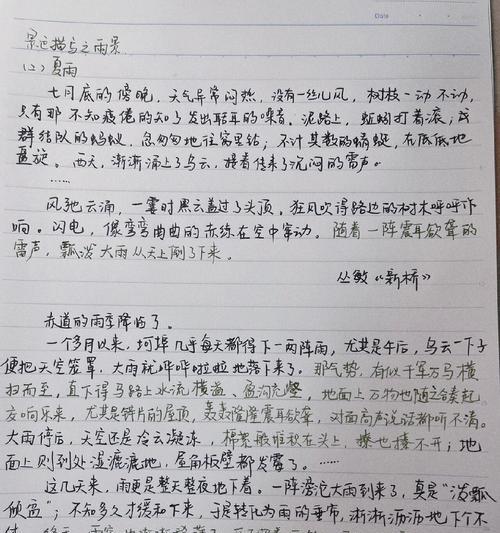 Date
景色描写之雨景
(二) 夏雨
七月底的傍晚,天气异常闷热,没有一丝儿风,树枝一动不动,
只有那不知疲倦的知了发出聒耳的噪音。泥路上,蚯蚓打着滚;成
群结队的蚂蚁,忽匆匆地往窝里钻;不计其数的蜻蜓,在低低地
盘旋。西天,渐渐涌上了乌云,接着传来了沉闷的雷声。
……
风驰云涌,一霎时黑云盖过了头顶。狂风吹得路边的树木呼呼作
响。闪电,像弯弯曲曲的赤练在空中窜动。随着一阵震耳欲聋的
雷声,瓢泼大雨从天上倒了下来。
丛敏《新桥》
赤道的雨季降临了。
一个多月以来,坷埠几乎每天都得下一两阵雨,尤其是午后,乌云一下子
便把天空笼罩,大雨就哗哗啦啦地落下来了。那气势,有似千军万马横
扫而至,直下得马路上水流横溢、沟充壑,地面上万物也随之合奏起
交响乐来,尤其是锌片的屋顶,轰轰隆隆震耳欲聋,对面高声说话都听不清。
大雨停后,天空还是冷云凝冻,棉絮般堆积在头上,撩也撩不开;地
面上则到处湿漉漉地,屋角板壁都发霉了。……
这几天来,雨更是整天整夜地下着。一阵滂沱大雨到来了,真是“泼瓢
倾盆”;不知多久才缓和下来,于是转化为雨的垂帘,淅淅沥沥地下个不